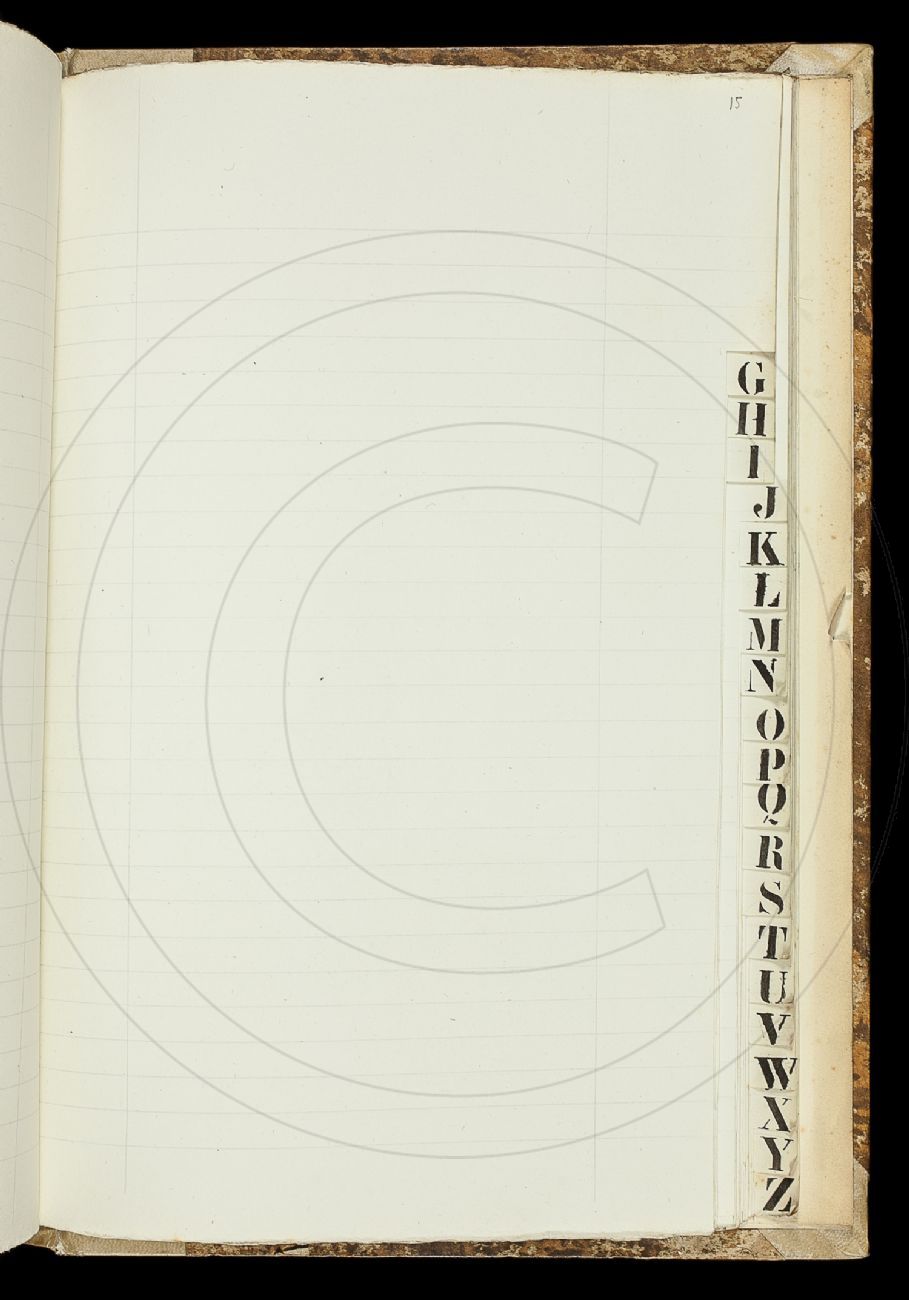 15
G
H
I
J
K
L
M
N
O
P
Q
R
S
T
U
V
W
X
Y
Z